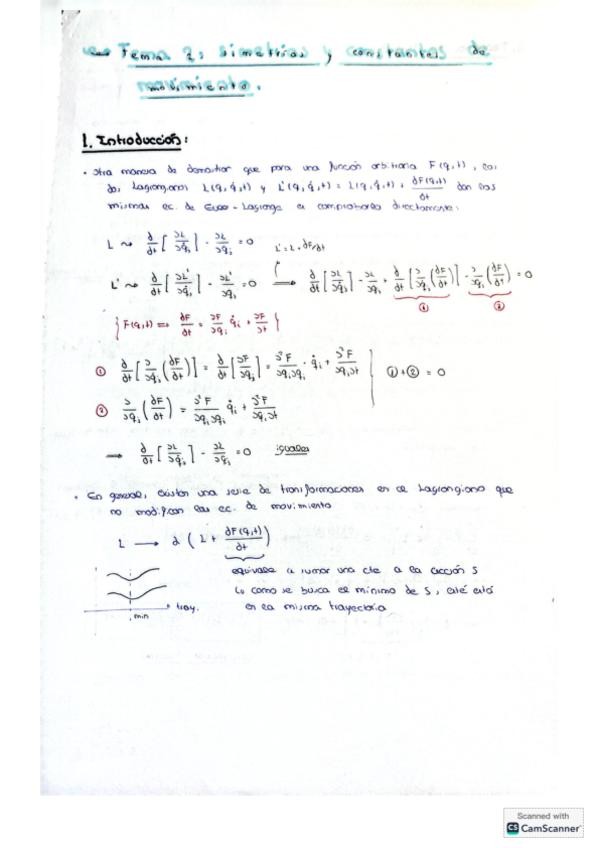 Tema 2: simetrías y constantes de
movimiento.
1. Introducción:
• Otra manera de demostrar que para una función arbitraria F(q,t), los
dos Lagrangianos L(q,q̇,t) y L'(q,q̇,t) = L(q,q̇,t) + dF(q,t)/dt dan las
mismas ec. de Euler-Lagrange es comprobarlo directamente:
L ⇝ d/dt [∂L/∂q̇i] - ∂L/∂qi = 0 L' = L + dF/dt
L' ⇝ d/dt [∂L'/∂q̇i] - ∂L'/∂qi = 0 → d/dt [∂L/∂q̇i] - ∂L/∂qi + d/dt [∂/∂q̇i (dF/dt)] - ∂/∂qi (dF/dt) = 0
① ②
{ F(q,t) ⟹ dF/dt = ∂F/∂qi q̇i + ∂F/∂t }
① d/dt [∂/∂q̇i (dF/dt)] = d/dt [∂F/∂qi] = ∂²F/∂qi∂qj · q̇i + ∂²F/∂qi∂t
① + ② = 0
② ∂/∂qi (dF/dt) = ∂²F/∂qi∂qj q̇i + ∂²F/∂qi∂t
→ d/dt [∂L/∂q̇i] - ∂L/∂qi = 0 iguales
• En general, existen una serie de transformaciones en el Lagrangiano que
no modifican las ec. de movimiento
L → α (L + dF(q,t)/dt)
equivale a sumar una cte a la acción S
↳ como se busca el mínimo de S, este está
en la misma trayectoria
tray.
min
Scanned with
CS CamScanner